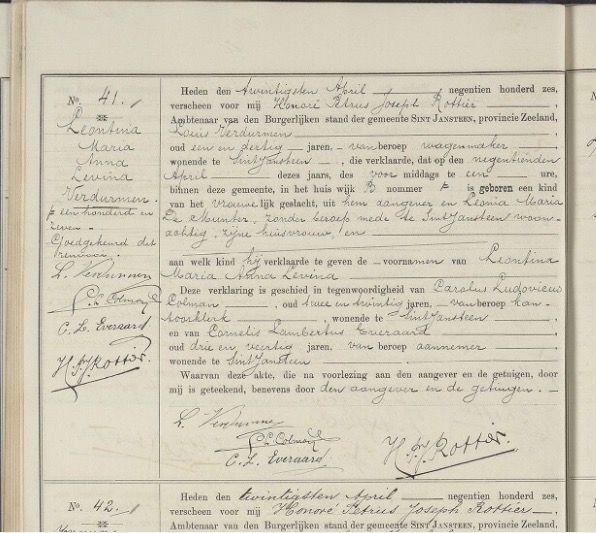 No. 41.
Leontina
Maria
Anna
Levina
Verdurmen.
een honderd en
zeven
Goedgekeurd dit
renvooi.
L. Verdurmen
C. L. Colman
C. L. Everaard
H.P.J. Rottier.
Heden den twintigsten April negentien honderd zes,
verscheen voor mij Honoré Petrus Joseph Rottier,
Ambtenaar van den Burgerlijken stand der gemeente SINT JANSTEEN, provincie Zeeland,
Louis Verdurmen
oud een en dertig jaren, van beroep wagenmaker,
wonende te Sint Jansteen, die verklaarde, dat op den negentienden
April dezes jaars, des voor middags te een ure,
binnen deze gemeente, in het huis wijk B nommer is geboren een kind
van het vrouwelijk geslacht, uit hem aangever en Leonia Maria
De Munter, zonder beroep mede te Sint Jansteen woon-
achtig, zijne huisvrouw, en
aan welk kind hij verklaarde te geven de voornamen van Leontina
Maria Anna Levina
Deze verklaring is geschied in tegenwoordigheid van Carolus Ludovicus
Colman, oud twee en twintig jaren, van beroep kan-
toorklerk, wonende te Sint Jansteen
en van Cornelis Lambertus Everaard,
oud drie en veertig jaren, van beroep aannemer
wonende te Sint Jansteen
Waarvan deze akte, die na voorlezing aan den aangever en de getuigen, door
mij is geteekend, benevens door den aangever en de getuigen.
L. Verdurmen
C. L. Colman
C. L. Everaard
H.P.J. Rottier.
No. 42.
Heden den twintigsten April negentien honderd zes,
verscheen voor mij Honoré Petrus Joseph Rottier,
Ambtenaar van den Burgerlijken stand der gemeente SINT JANSTEEN, provincie Zeeland,